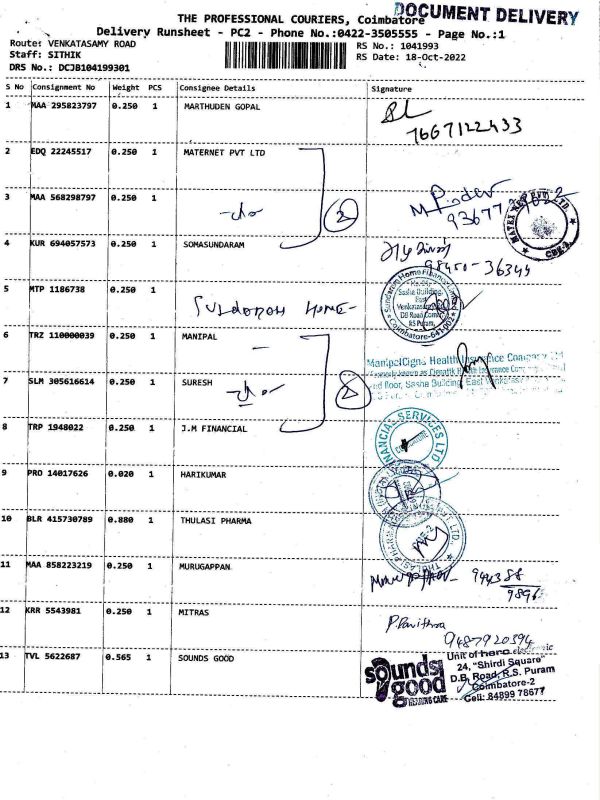 DOCUMENT DELIVERY
THE PROFESSIONAL COURIERS, Coimbatore
Delivery Runsheet - PC2 - Phone No.:0422-3505555 - Page No.:1
Route: VENKATASAMY ROAD
Staff: SITHIK
DRS No.: DCJB104199301
RS No.: 1041993
RS Date: 18-Oct-2022
S No Consignment No Weight PCS Consignee Details Signature
1 MAA 295823797 0.250 1 MARTHUDEN GOPAL
7667122433
2 EDQ 22245517 0.250 1 MATERNET PVT LTD
3 MAA 568298797 0.250 1
2
4 KUR 694057573 0.250 1 SOMASUNDARAM
98450-36344
5 MTP 1186738 0.250 1
HOME
Sundaram Home Finance
Sasha Building,
East
D B Road
RS Puram,
Coimbatore-641 002
6 TRZ 110000039 0.250 1 MANIPAL
ManipalCigna Health Insurance Company Ltd
7 SLM 305616614 0.250 1 SURESH
2
Sasha Building, East
8 TRP 1948022 0.250 1 J.M FINANCIAL
FINANCIAL SERVICES LTD
9 PRO 14017626 0.020 1 HARIKUMAR
10 BLR 415730789 0.880 1 THULASI PHARMA
THULASI PHARMA
PVT LTD
11 MAA 858223219 0.250 1 MURUGAPPAN
12 KRR 5543981 0.250 1 MITRAS
P. Pavithra
9487920394
13 TVL 5622687 0.565 1 SOUNDS GOOD
sounds
good
HEARING CARE
Unit of hero electronic
24, "Shirdi Square"
D.B. Road, R.S. Puram
Coimbatore-2
Cell: 84899 78677